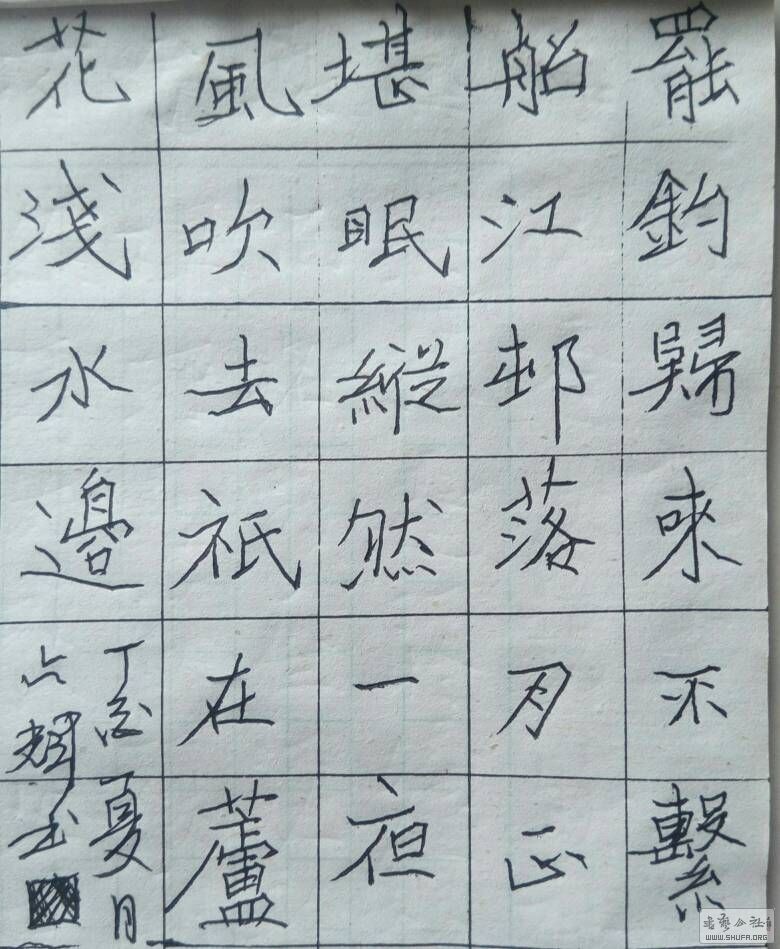 罷釣歸來不繫
船江邨落月正
堪眠縱然一夜
風吹去祇在蘆
花淺水邊
丁酉夏月
书
書藝公社
WWW.SHUFA.ORG